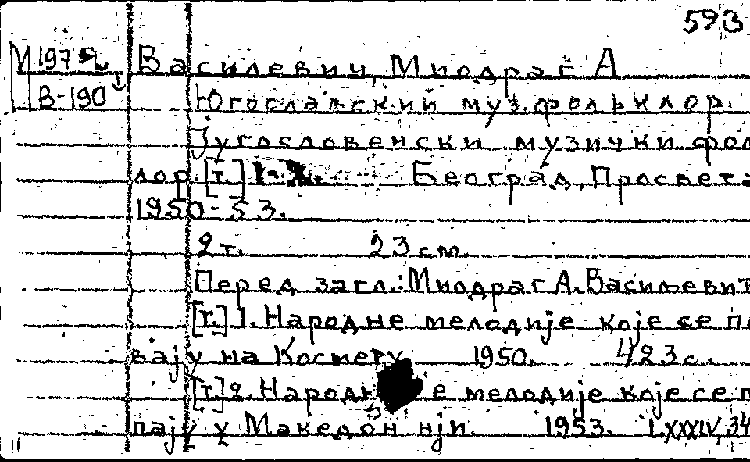 593
М 197
В-190
Василевич, Миодраг А
Югославский муз. фольклор.
Југословенски музички фол
лор. [т.] Београд, Просвета
1950-53.
2 т. 23 см.
Перед загл.: Миодраг А. Васиљевић
[т.] 1. Народне мелодије које се п
вају на Космету 1950. 423 с.
[т.] 2. Народне мелодије које се п
пају у Македонији 1953. LXXXIV, 34